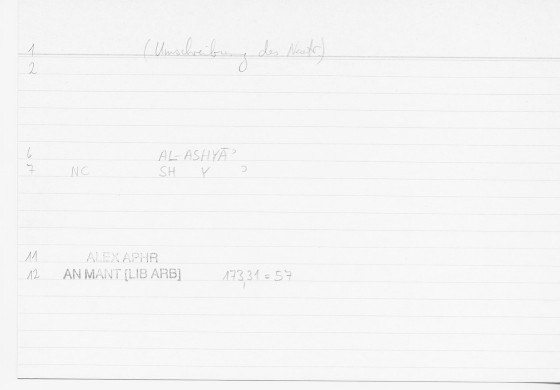 1 (Umschreibung des Neutr)
2
6 AL-ASHYĀʾ
7 NC SH Y ʾ
11 ALEX APHR
12 AN MANT [LIB ARB] 173,31 = 57